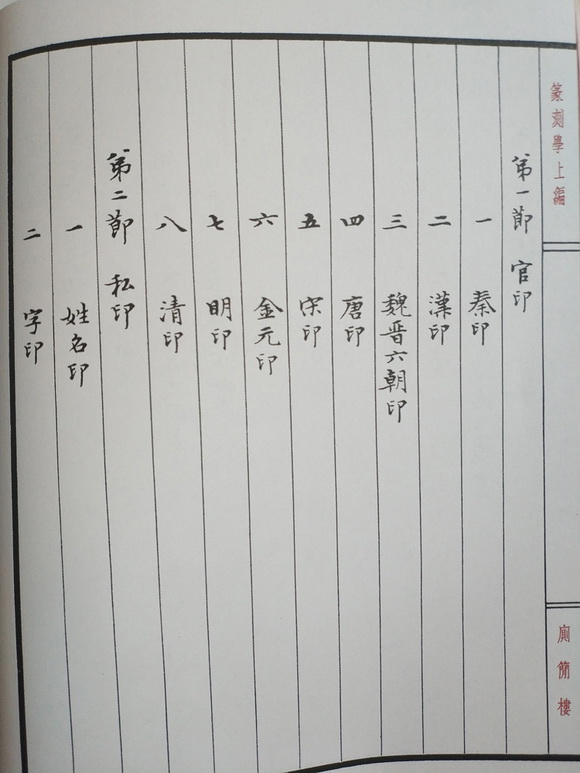 篆刻學上編
第一節 官印
一 秦印
二 漢印
三 魏晋六朝印
四 唐印
五 宋印
六 金元印
七 明印
八 清印
第二節 私印
一 姓名印
二 字印
廁簡樓